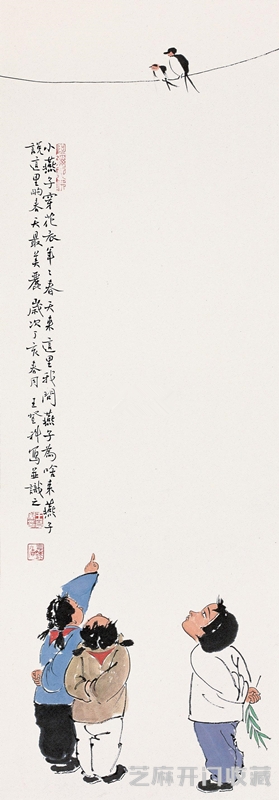 小燕子穿花衣年〻春天来这里我问燕子为啥来燕子
說这里的春天最美麗 歲次丁亥春月 王登科寫並識之
芝麻开门收藏